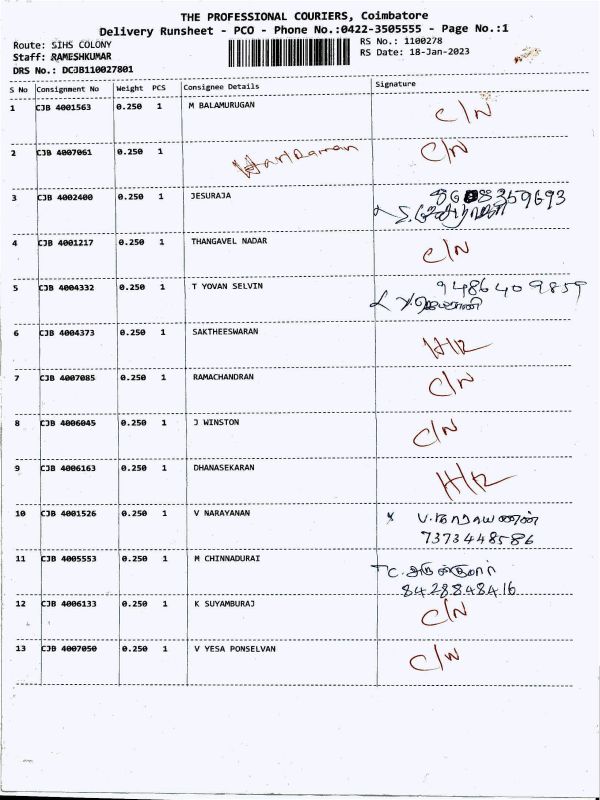 THE PROFESSIONAL COURIERS, Coimbatore
Delivery Runsheet - PCO - Phone No.:0422-3505555 - Page No.:1
Route: SIHS COLONY
RS No.: 1100278
Staff: RAMESHKUMAR
RS Date: 18-Jan-2023
DRS No.: DCJB110027801
S No Consignment No Weight PCS Consignee Details Signature
1 CJB 4001563 0.250 1 M BALAMURUGAN C/N
2 CJB 4007061 0.250 1 Hariraman C/N
3 CJB 4002400 0.250 1 JESURAJA
4 CJB 4001217 0.250 1 THANGAVEL NADAR C/N
5 CJB 4004332 0.250 1 T YOVAN SELVIN 9486409859
6 CJB 4004373 0.250 1 SAKTHEESWARAN H/R
7 CJB 4007085 0.250 1 RAMACHANDRAN C/N
8 CJB 4006045 0.250 1 J WINSTON C/N
9 CJB 4006163 0.250 1 DHANASEKARAN H/R
10 CJB 4001526 0.250 1 V NARAYANAN V.நாராயணன்
7373448586
11 CJB 4005553 0.250 1 M CHINNADURAI
8428848416
12 CJB 4006133 0.250 1 K SUYAMBURAJ C/N
13 CJB 4007050 0.250 1 V YESA PONSELVAN C/N